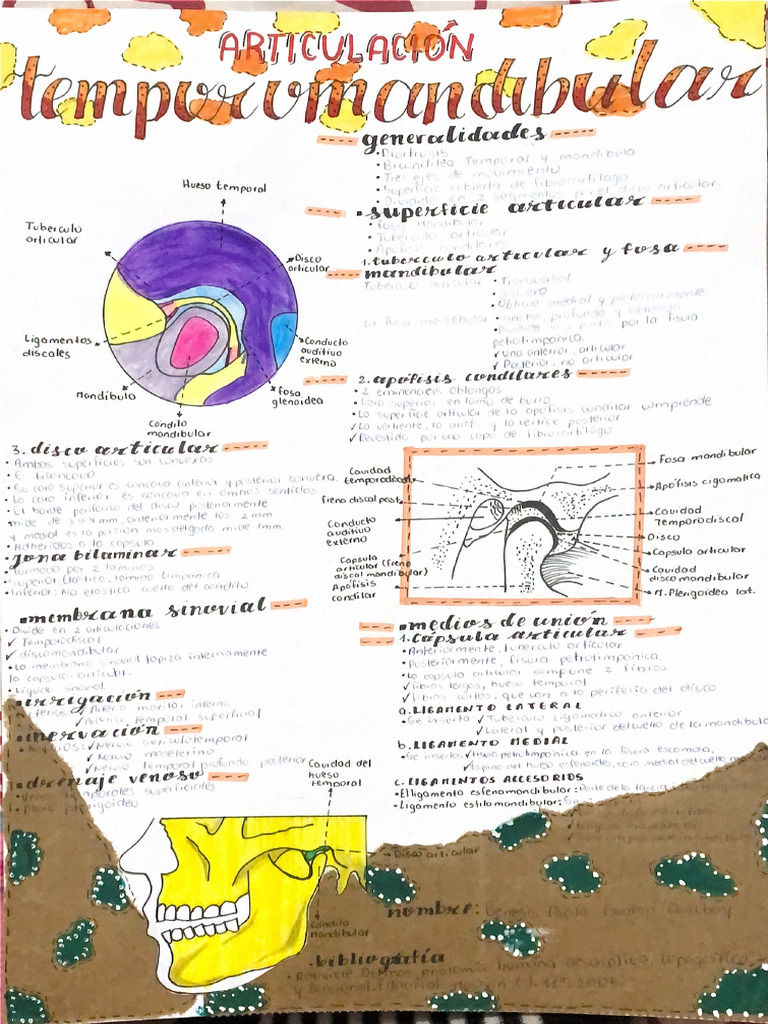 ARTICULACIÓN
temporomandibular
generalidades
• Diartrosis
• Bicondílea Temporal y mandíbula
• Tres ejes de movimiento
• Superficie cubierta de fibrocartílago
• Dividido en 2 segmentos por el disco articular.
• superficie articular
• Fosa mandibular
• Tuberculo articular
• Apófisis condilares
1. tuberculo articular y fosa
mandibular
Tuberculo articular • Transversal
• Oblicuo medial y posteriormente
La fosa mandibular • Ancha, profunda y
• Dividido en 2 partes por la fisura
petrotimpanica.
✓ Una anterior, articular
✓ Posterior, no articular
2. apófisis condilares
• 2 eminencias oblongas
• Cara superior en lomo de burro
• La superficie articular de la apófisis condilar comprende
✓ La vertiente, la y la vertice posterior
✓ Revestida por una capa de fibrocartílago
Hueso temporal
Tuberculo
articular
Disco
articular
Ligamentos
discales
Conducto
auditivo
externo
Mandíbula
Fosa
glenoidea
Condilo
mandibular
3. disco articular
• Ambas superficies son convexas
• Es biconcavo
• Su cara superior es concava anterior y posterior convexa.
• La cara inferior es concava en ambos sentidos
• El borde periferico del disco posteriormente
mide de 3 a 4 mm, anteriormente los 2 mm
y medial es la porción mas delgada mide 1mm.
• Adheridos a la capsula
zona bilaminar
• Formado por 2 laminas
• Superior: Elastica, lamina timpanica
• Inferior: No elastica cuello del condilo
• membrana sinovial
• Divide en 2 articulaciones
✓ Temporodiscal
✓ discomandibular
• La membrana sinovial tapiza internamente
la capsula articular.
• Liquido sinovial
• irrigación
• Arterias: ✓ Arteria maxilar interna
✓ Arteria temporal superficial
• inervación
• Nervios: ✓ Nervio auriculotemporal
✓ Nervio maseterino
✓ Nervio temporal profundo posterior
• drenaje venoso
• Venas temporales superficiales
• Plexo pterigoideo
Cavidad
temporodiscal
Freno discal post.
Conducto
auditivo
externo
Capsula
articular (freno
discal mandibular)
Apófisis
condilar
Fosa mandibular
Apófisis cigomatica
Cavidad
Temporodiscal
Disco
Capsula articular
Cavidad
disco mandibular
M. Pterigoideo lat.
• medios de unión
1. Cápsula articular
• Anteriormente, tuberculo articular
• Posteriormente, fisura petrotimpanica.
• La capsula articular compune 2 fibras
✓ Fibras largas, hueso temporal
✓ Fibras cortas, que van a la periferia del disco
a. LIGAMENTO LATERAL
• Se inserta: ✓ Tuberculo cigomatico anterior
✓ Lateral y posterior del cuello de la mandibula
b. LIGAMENTO MEDIAL
• Se inserta: ✓ Fisura petrotimpanica en la fisura escamosa,
✓ Espina del hueso esfenoides, cara medial del cuello
c. LIGAMENTOS ACCESORIOS
• El ligamento esfenomandibular: Parte de la fascia
• Ligamento estilomandibular:
Cavidad del
hueso
temporal
Disco articular
Condilo
Mandibular
nombre:
• bibliografía
• Rouviere, Delmas, anatomia humana descriptiva, topografica
y funcional. Editorial Masson Ed. 11º; 2005.